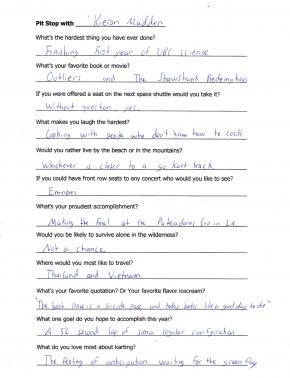 Pit Stop with Kieran Madden
What's the hardest thing you have ever done?
Finishing first year of UBC science
What's your favorite book or movie?
Outliers and The Shawshank Redemption
If you were offered a seat on the next space shuttle would you take it?
Without question, yes.
What makes you laugh the hardest?
Cooking with people who don't know how to cook
Would you rather live by the beach or in the mountains?
Whichever is closer to a go kart track
If you could have front row seats to any concert who would you like to see?
Eminem
What's your proudest accomplishment?
Making the final at the in LA
Would you be likely to survive alone in the wilderness?
Not a chance.
Where would you most like to travel?
Thailand and Vietnam
What's your favorite quotation? Or Your favorite flavor icecream?
"The best pace is a suicide pace, and today looks like a good day to die"
What one goal do you hope to accomplish this year?
A 52 second lap of sima regular configuration
What do you love most about karting?
The feeling of anticipation waiting for the green flag